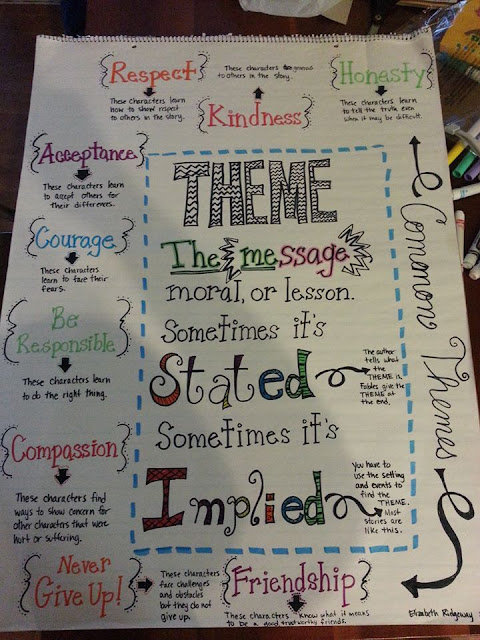 Respect
These characters learn
how to show respect
to others in the story.
These characters
to others in the story.
Kindness
Honesty
These characters learn
to tell the truth even
when it may be difficult.
Acceptance
These characters learn
to accept others for
their differences.
Courage
These characters
learn to face their
fears.
Be
Responsible
These characters learn
to do the right thing.
Compassion
These characters find
ways to show concern for
other characters that were
hurt or suffering.
Never
Give Up!
These characters
face challenges
and obstacles
but they do not
give up.
Friendship
These characters know what it means
to be a good trustworthy friends.
THEME
The message
moral, or lesson.
Sometimes it's
Stated
The author
tells what
the THEME is.
Fables give the
THEME at
the end.
Sometimes it's
Implied
You have to
use the setting
and events to
find the
THEME.
Most
stories are
like this.
Common Themes
Elizabeth Ridgeway